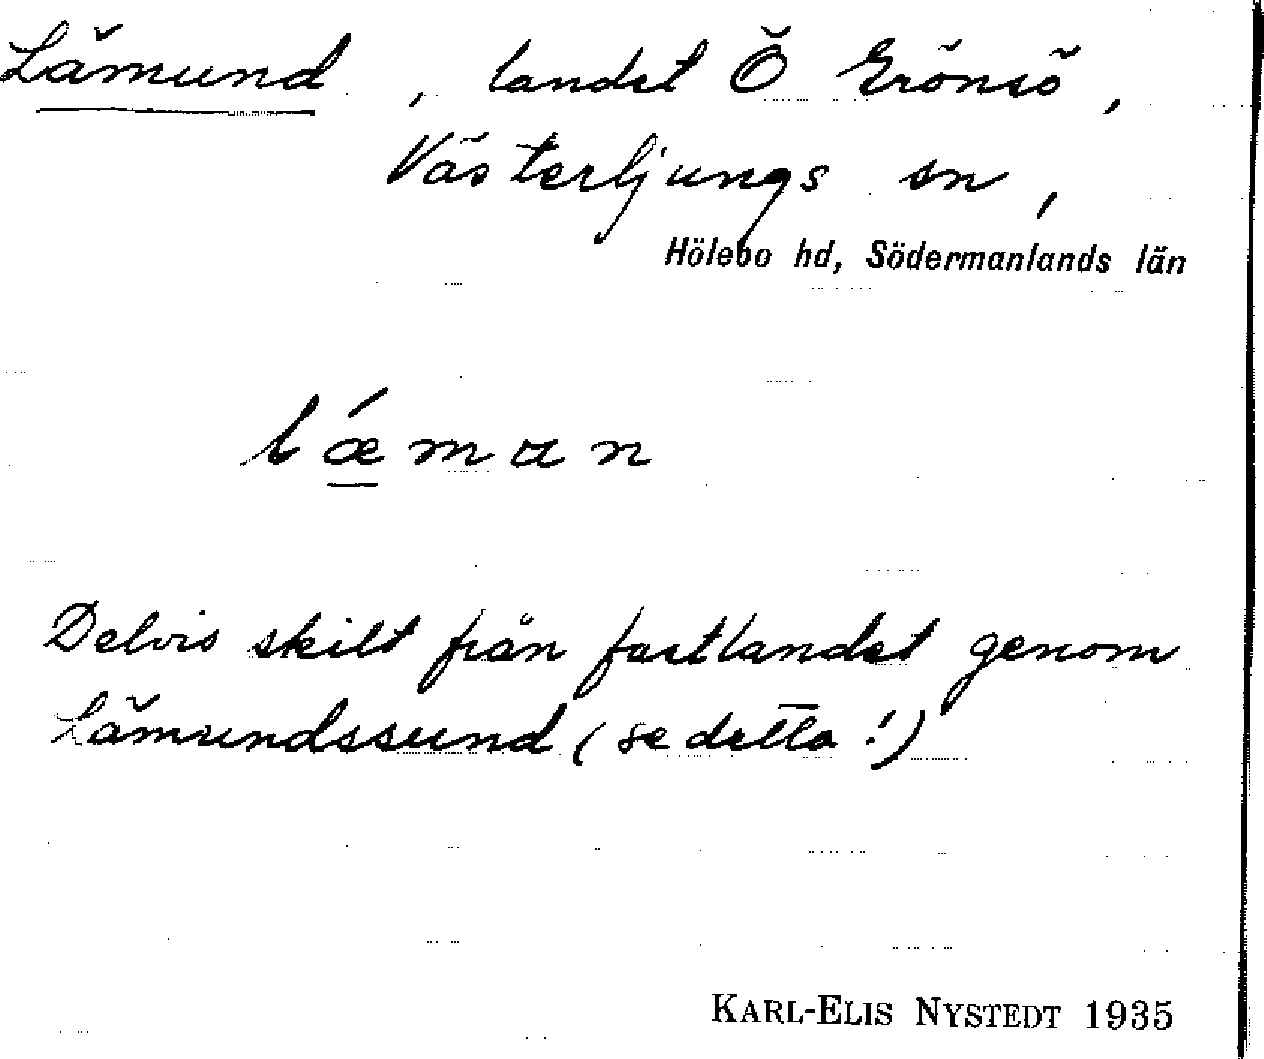 Lämund, landet Ö Grönsö,
Västerljungs sn,
Hölebo hd, Södermanlands län
lǽman
Delvis skilt från fastlandet genom
Lämundssund (se detta!)
KARL-ELIS NYSTEDT 1935